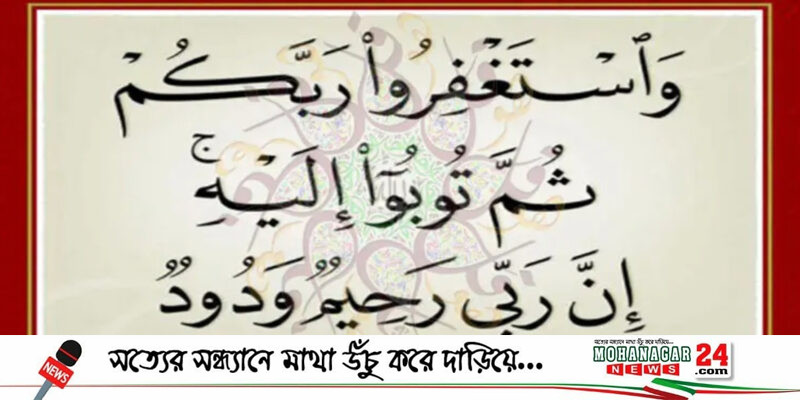 وَٱسْتَغْفِرُوا۟ رَبَّكُمْ
ثُمَّ تُوبُوٓا۟ إِلَيْهِ ۚ
إِنَّ رَبِّى رَحِيمٌ وَدُودٌ
NEWS
সত্যের সন্ধ্যানে মাথা উঁচু করে দাড়িয়ে...
সত্যের সন্ধ্যানে মাথা উঁচু করে দাড়িয়ে...
MOHANAGAR 24
NEWS .com